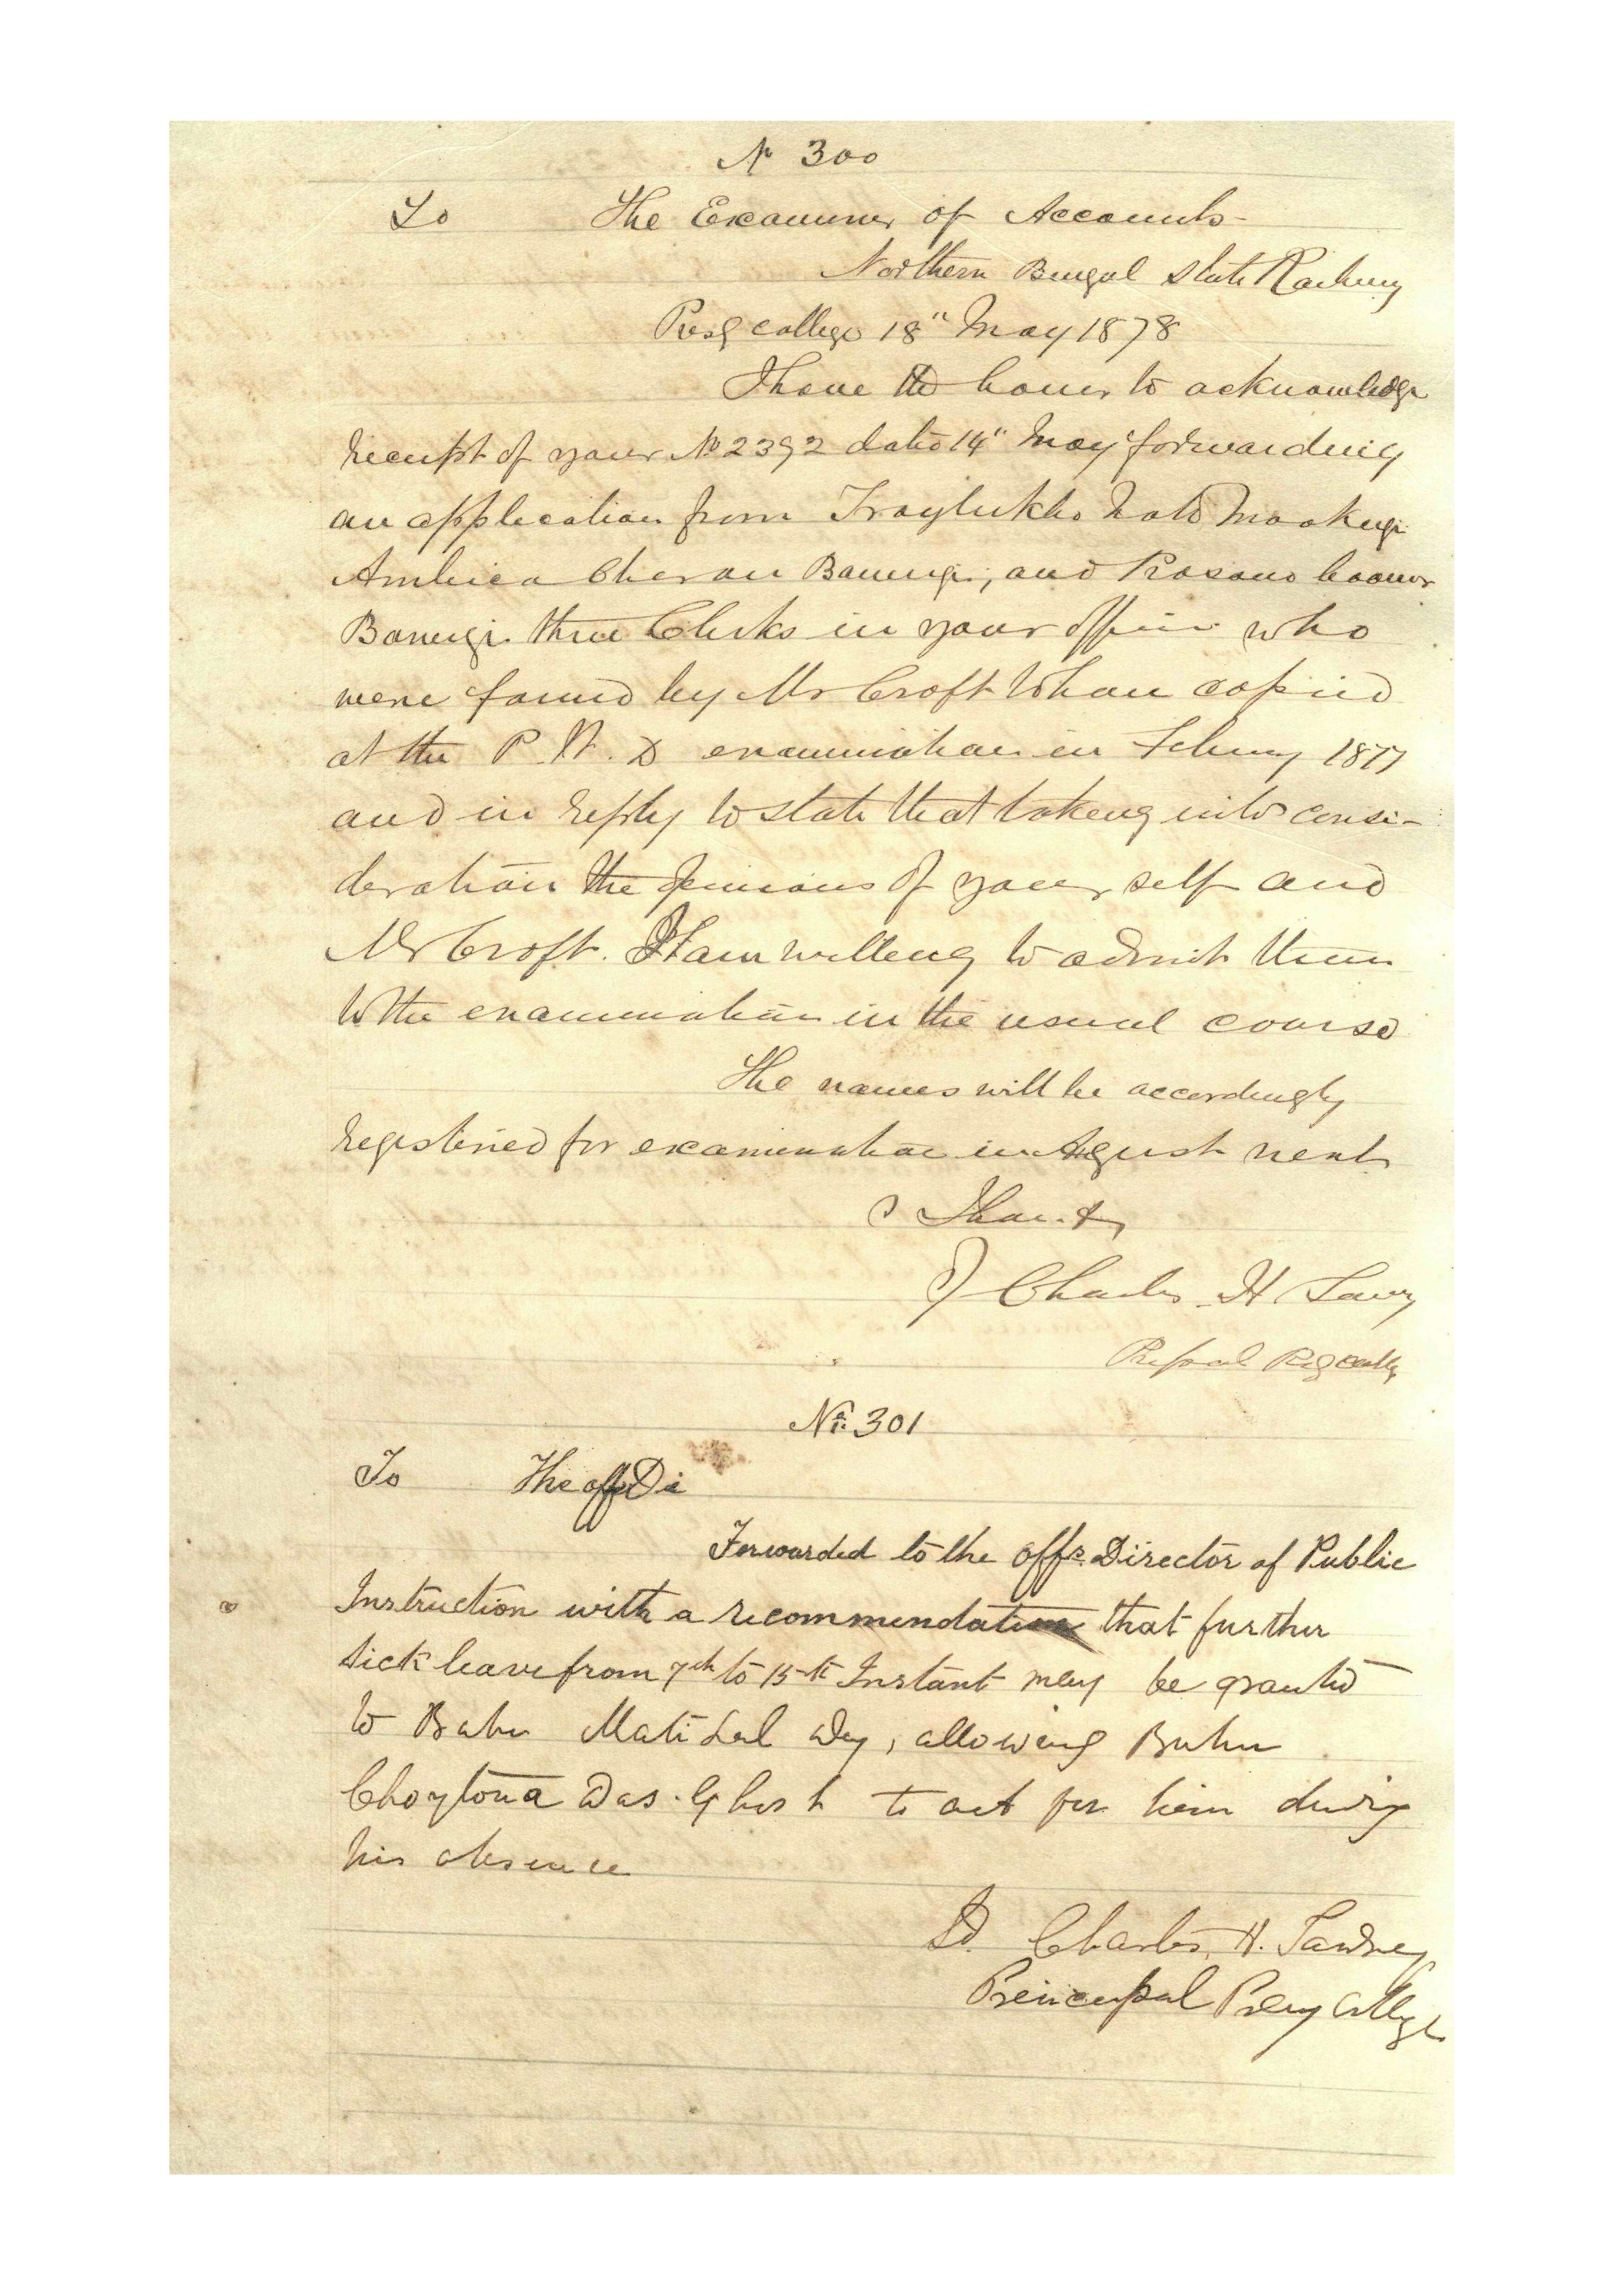 No 300
To The Examiner of Accounts
Northern Bengal State Railway
Presy college 18" May 1878
I have the honor to acknowledge
receipt of your No 2392 dated 14" May forwarding
an application from Troylukho Nath Mookerji
Ambica Churan Banerji, and Prosono Coomar
Banerji three Clerks in your office who
were found by Mr Croft to have copied
at the P. W. D examination in Febury 1877
and in reply to state that taking into consi-
deration the opinions of your self and
Mr Croft. I am willing to admit them
to the examination in the usual course
The names will be accordingly
registered for examination in August next
I have &
Charles H Tawny
Presy college
No. 301
To The offg Di
Forwarded to the offg. Director of Public
Instruction with a recommendation that further
sick leave from 7th to 15th Instant may be granted
to Babu Mati Lal Dey, allowing Babu
Choytona Das Ghosh to act for him during
his absence
Sd. Charles. H. Tawney
Principal Presy College